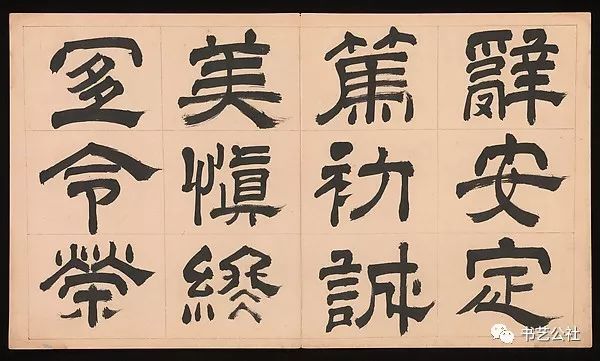 辭安定
篤初誠
美慎終
宜令榮
书艺公社